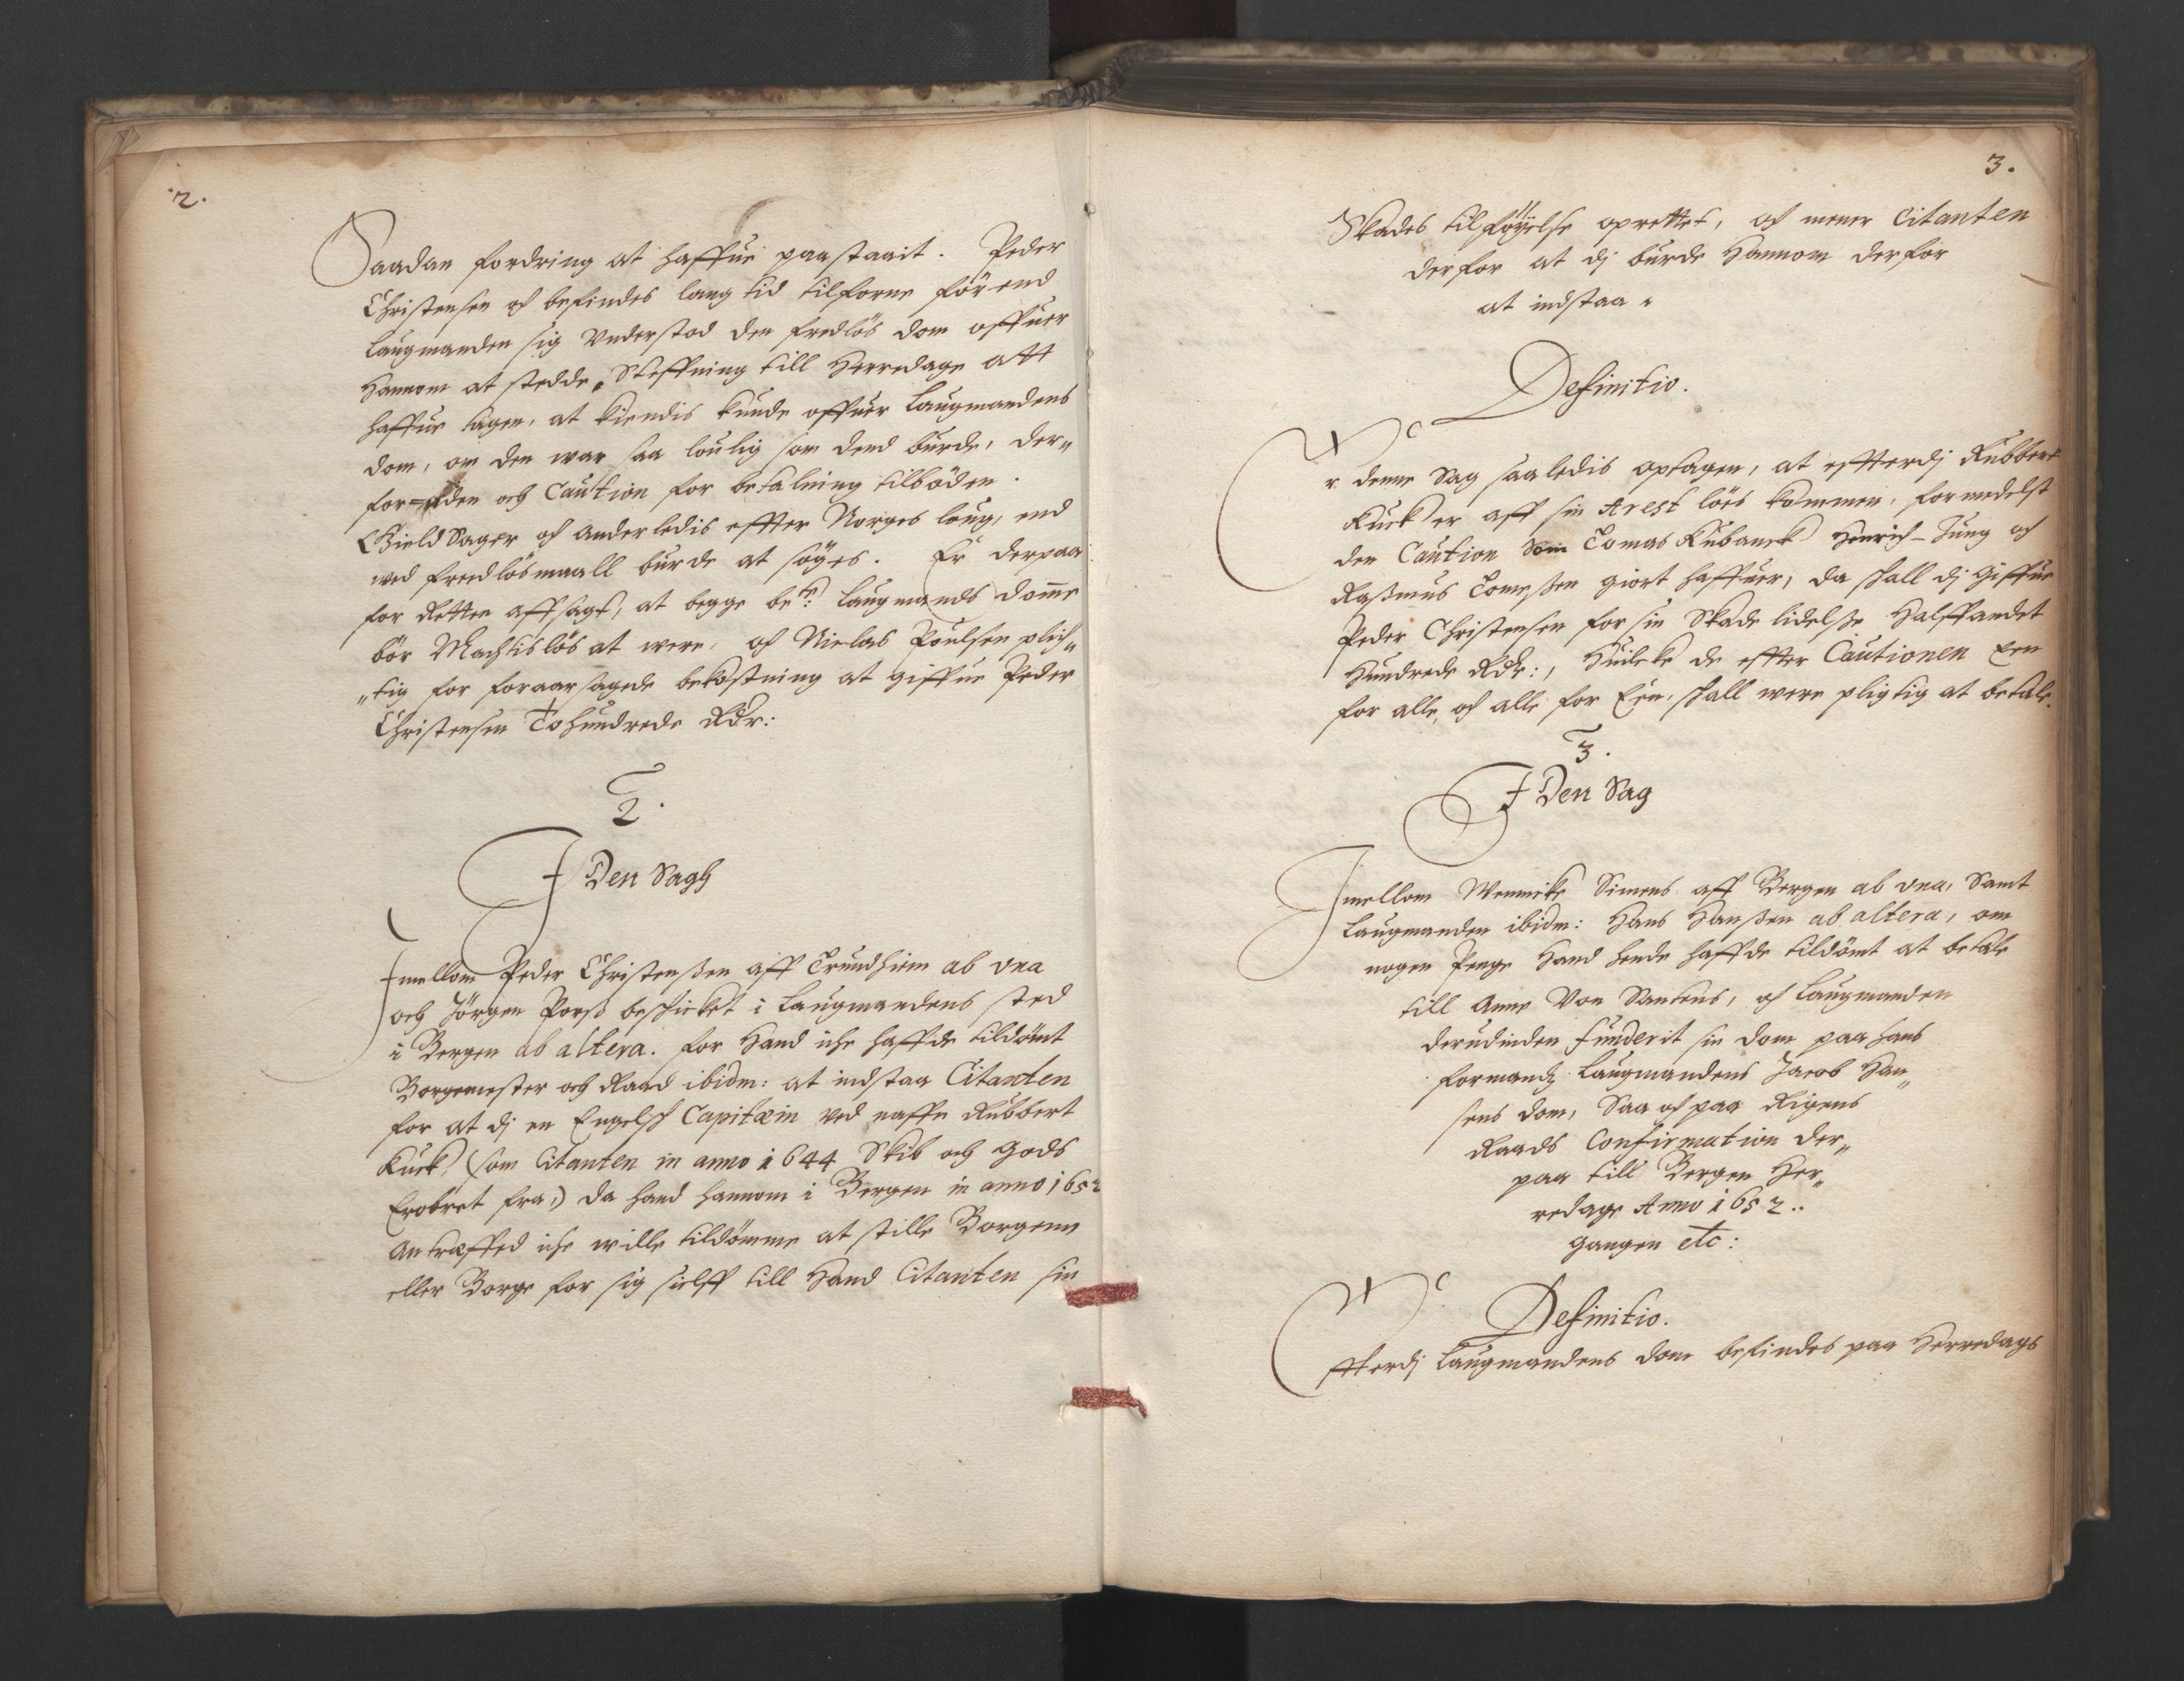 2.
Saadan fordring at haffue paastaait. Peder
Christensen och befindes lang tid tilforne förend
Laugmanden sig Understod den fredlös dom offuer
Hannom at stedde, Steffning till Herredage att
haffue tagen, at kiendis kunde offuer Laugmandens
dom, om den war saa loulig som dend burde, der„
for uden och Caution for betalning tilböden.
Gield Sager och anderledis effter Norges loug, end
med fredlösmaall burde at söges. Er derpaa
for Retten affsagt, at begge bete: Laugmands domme
bör Machtislös at were, och Nielas Poulsen plich„
„tig for foraarsagede bekostning at giffue Peder
Christensen Tohundrede Rdr:
2.
I Den Sagh
Imellom Peder Christensen aff Trundhiem ab una
och Jörgen Pors beskicket i Laugmandens sted
i Bergen ab altera. for Hand iche haffde tildömt
Borgemester och Raad ibidm: at indstaa Citanten
for at dj en Engelsk Capitæin ved naffn Rubbert
Kuck, (som Citanten in anno 1644 Skib och Gods
Erobret fra,) da hand hannom i Bergen in anno 1652
Antræffed iche wille tildömme at stille Borgenn
eller Borge for sig sielff till Hand Citanten sin
3.
Skades tilföyelse oprettet, och mener Citanten
derfor at dj burde Hannom derfor
at indstaa.
Definitio.
Er denne Sag saaledis optagen, at effterdj Rubbert
Kuck er aff sin Arest löes kommen, formedelst
den Caution Som Tomas Kubanck Henrich Jung och
Rasmus Tomesen giort haffuer, da skall dj giffue
Peder Christensen for sin Skade lidelse Halffandet
Hundrede Rdr:, Huilcke de effter Cautionen Een
for alle, och alle for Een, skall were pligtig at betale.
3.
I Den Sag
Imellom Wennicke Simens aff Bergen ab una, Samt
Laugmanden ibidm: Hans Hansen ab altera, om
nogen Penge Hand hende haffde tildömt at betale
till Anne Von Santens, och Laugmanden
derudinden funderit sin dom paa hans
formandz Laugmandens Jacob Han„
sens dom, Saa och paa Rigens
Raads Confirmation der„
paa till Bergen Her„
redage Anno 1652..
gangen etc:
Definitio.
Effterdj Laugmandens dom befindes paa Herredags